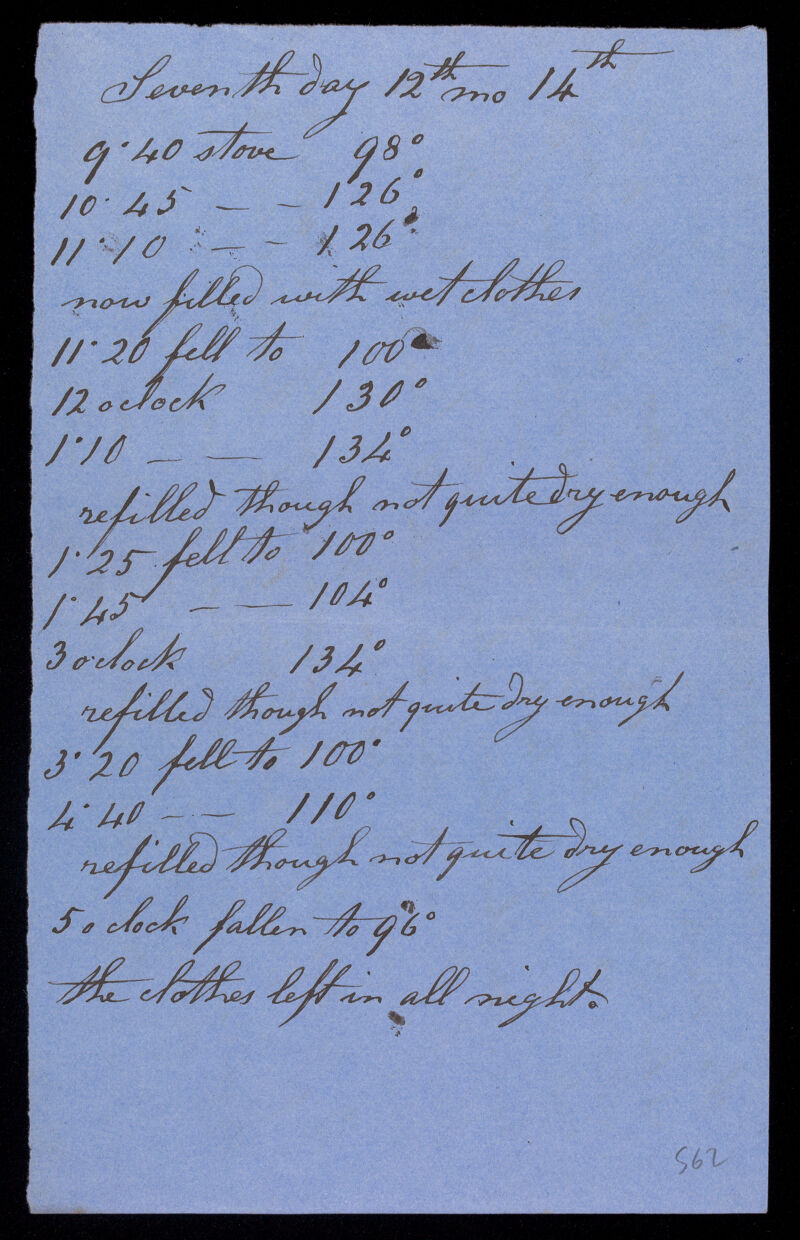 Seventh day 12th mo 14th
9·40 stove 98°
10·45 — — 126°
11·10 — — 126°
now filled with wet clothes
11·20 fell to 100°
12 oclock 130°
1·10 — — 134°
refilled though not quite dry enough
1·25 fell to 100°
1·45 — — 104°
3 o'clock 134°
refilled though not quite dry enough
3·20 fell to 100°
4·40 — — 110°
refilled though not quite dry enough
5 o clock fallen to 96°
the clothes left in all night.
562